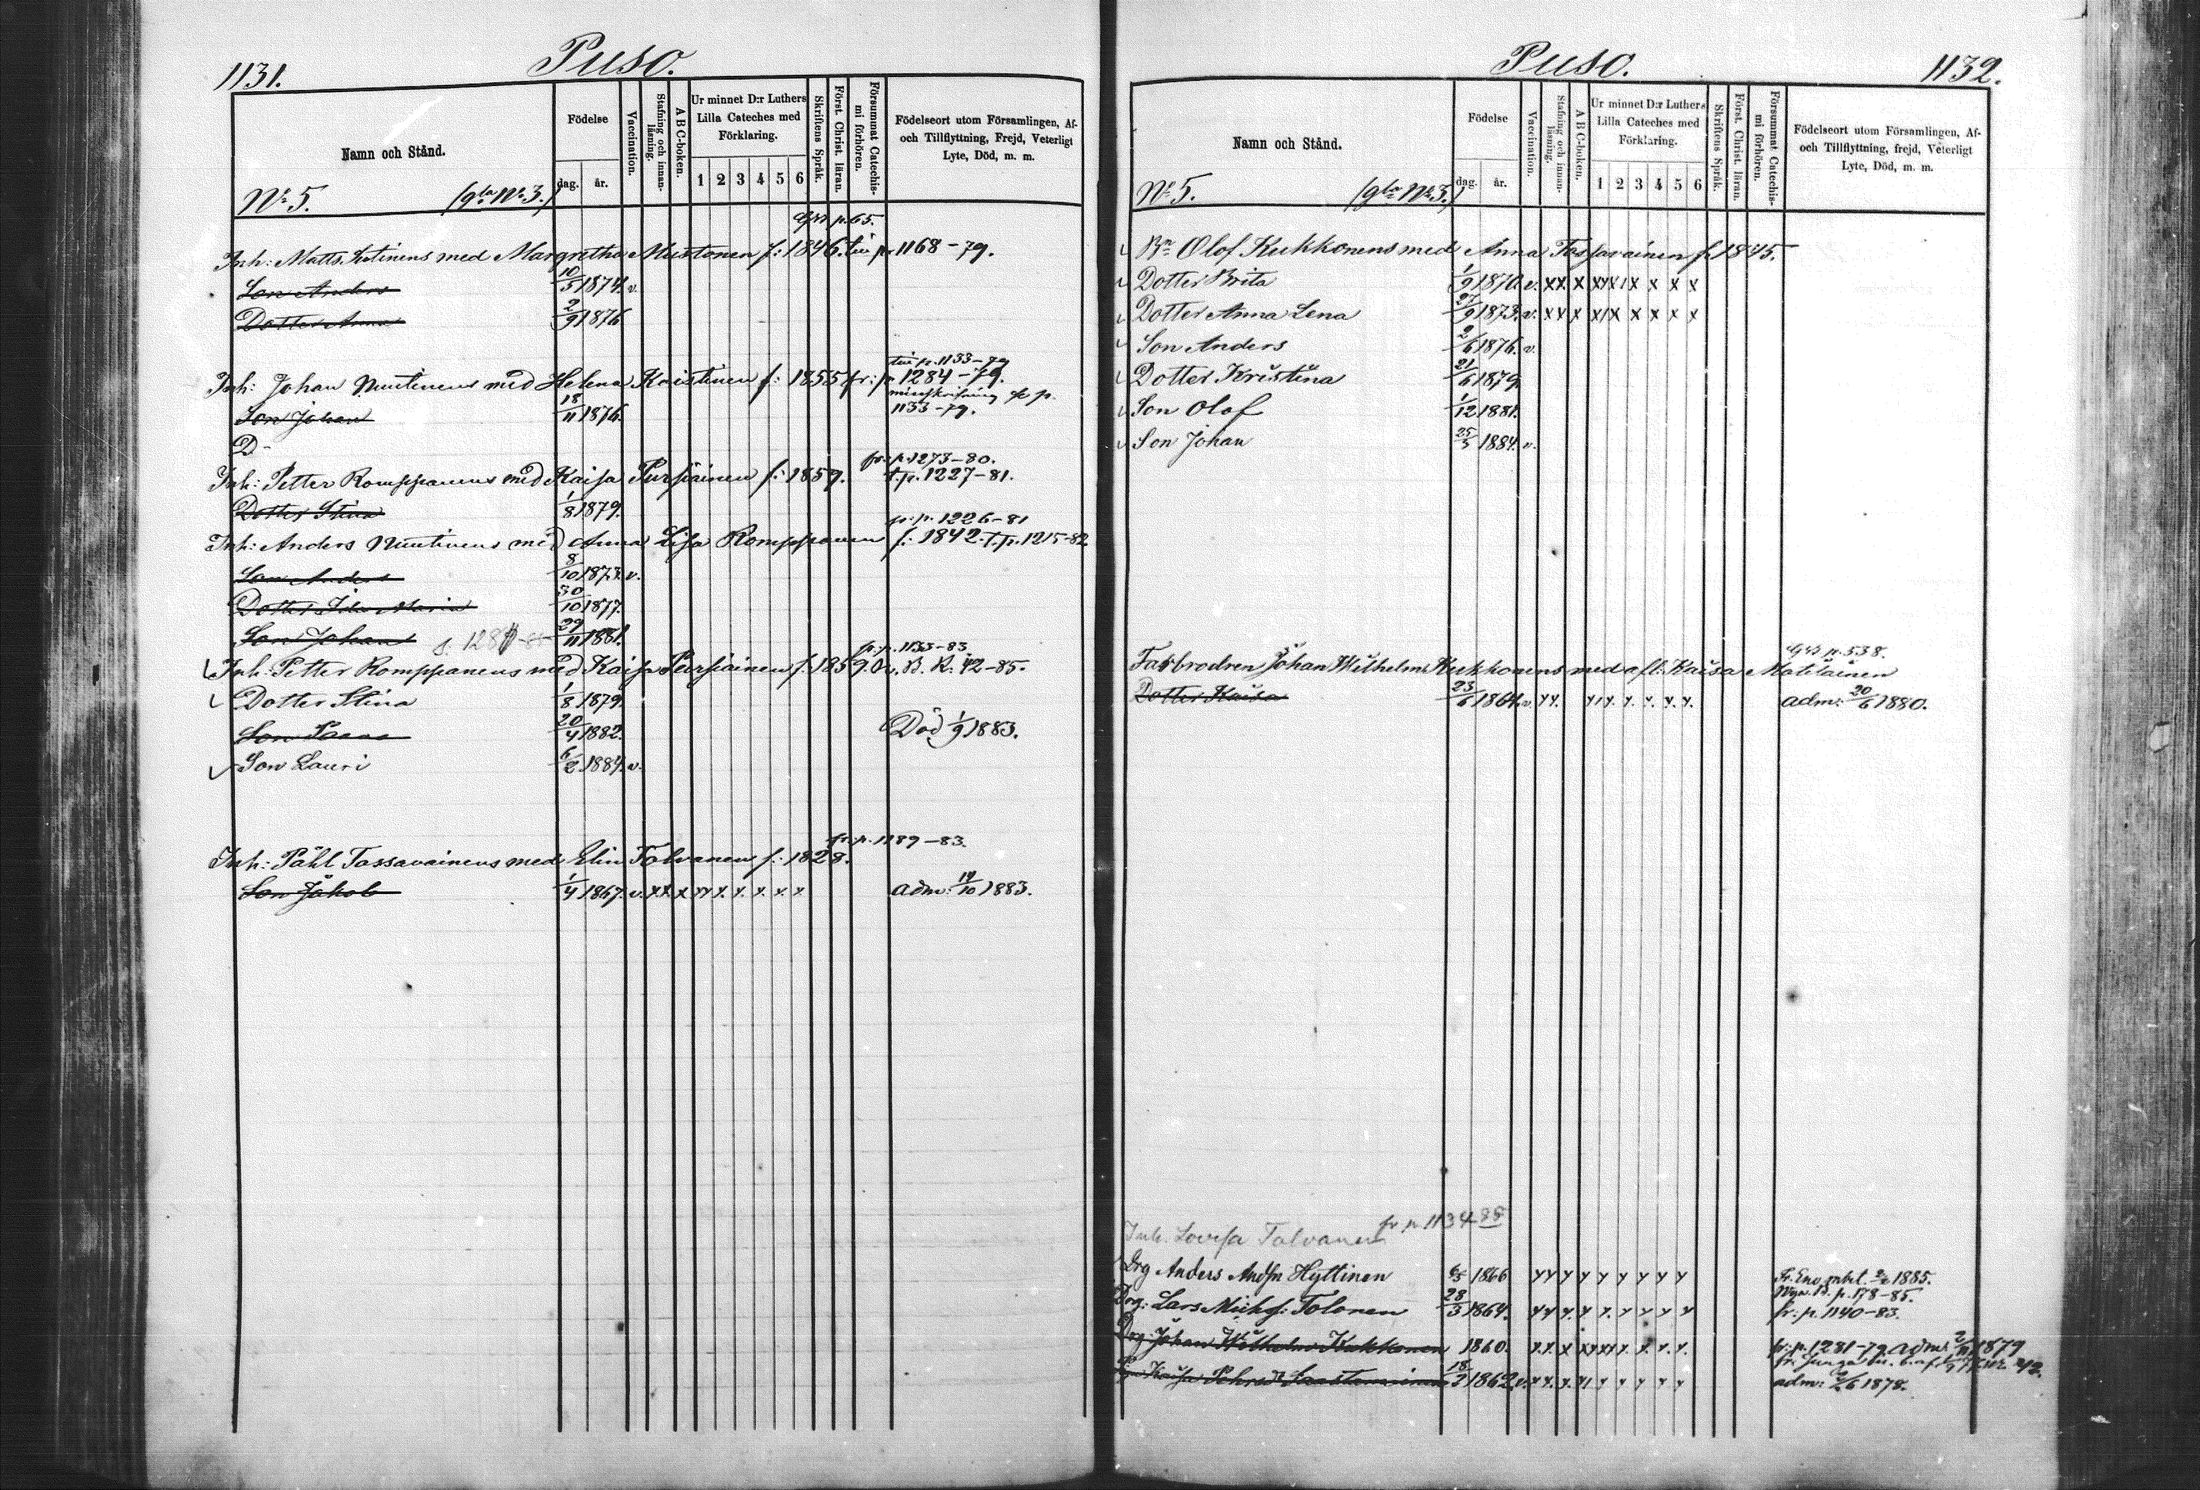 1131.
Puso.
Namn och Stånd.
Födelse
dag. år.
Vaccination.
Stafning och innan-läsning.
A B C-boken.
Ur minnet D:r Luthers Lilla Cateches med Förklaring.
1 2 3 4 5 6
Skriftens Språk.
Först. Christ. läran.
Försummat Catechis-mi förhören.
Födelseort utom Församlingen, Af- och Tillflyttning, Frejd, Veterligt Lyte, Död, m. m.
No 5. (gla No 3.)
p. 65.
Inh: Matts med Margretha Mustonen f: 1846. till p. 1168-79.
Son Anders 10/5 1874. v.
Dotter Anna 2/9 1876
till p. 1133-79
Inh: Johan Nuutinens med Helena Kaistinen f: 1855 fr: p. 1284-79.
Son Johan 18/11 1876. 1133-79.
D-
fr: p. 1273-80.
Inh: Petter Romppanens med Kaisa Pursiainen f: 1859. t. p. 1227-81.
Dotter Stina 1/8 1879.
fr. p. 1226-81
Inh: Anders Nuutinens med Anna Lisa Romppanen f: 1842. t. p. 1215-82
Son Anders 8/10 1873. v.
Dotter Maria 30/10 1877.
Son Johan 29/11 1881.
fr: p. 1133-83
Inh: Petter Romppanens med Kaisa Pursiainen f. 1859. B. K. 42-85.
Dotter Stina 1/8 1879.
Son 20/4 1882. Död 1/9 1883.
Son Lauri 6/2 1884. v.
fr: p. 1189-83.
Inh: Påhl Tassavainens med Elin Talvanen f: 1828.
Son Jakob 1/4 1867. v. x x x x x x. x. x. x. x adm: 14/10 1883.
Puso.
1132.
Namn och Stånd.
Födelse
dag. år.
Vaccination.
Stafning och innan-läsning.
A B C-boken.
Ur minnet D:r Luthers Lilla Cateches med Förklaring.
1 2 3 4 5 6
Skriftens Språk.
Först. Christ. läran.
Försummat Catechis-mi förhören.
Födelseort utom Församlingen, Af- och Tillflyttning, frejd, Veterligt Lyte, Död, m. m.
No 5. (gla No 3.)
Bn Olof Kukkonens med Anna Tossavainen f. 1845.
Dotter Brita 1/9 1870. v. x x x x x x x x x x
Dotter Anna Lena 27/9 1873. v. x x x x x x x x x
Son Anders 2/6 1876. v.
Dotter Kristina 21/6 1879.
Son Olof 1/12 1881.
Son Johan 25/5 1884. v.
p. 538.
Farbrodren Johan Wilhelm Kukkonens med afl: Kaisa Matilainen
Dotter Kaisa 23/6 1864. v. adm: 20/6 1880.
fr. p. 1134-85
Inh. Lovisa Talvanen
Drg Anders Andsn Hyttinen 1866 1885.
p. 178-85.
Drg: Lars Michs: Tolonen 28/3 1864. fr: p. 1140-83.
Drg: Johan Wilhelm Kukkonen 1860. fr: p. 1281-79 adm: 1879
Kaisa 18/2 1862. v. adm: 1878.